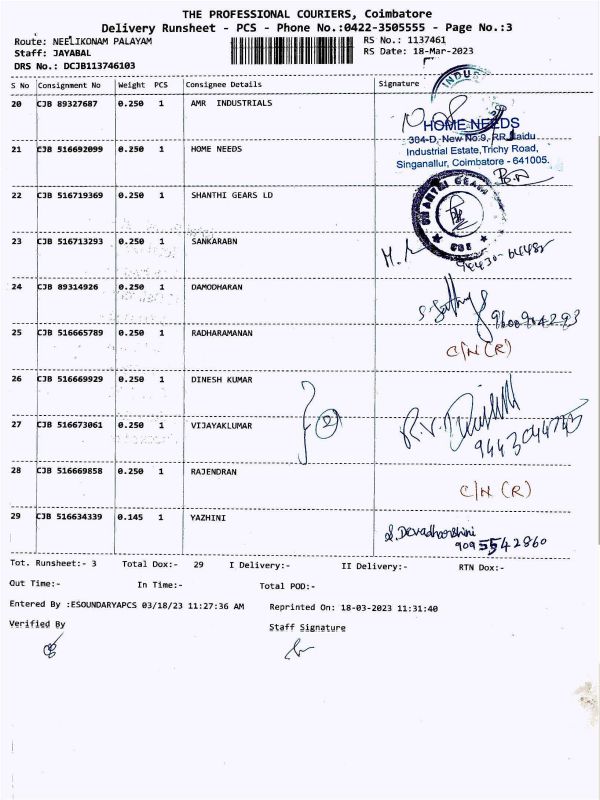 THE PROFESSIONAL COURIERS, Coimbatore
Delivery Runsheet - PCS - Phone No.:0422-3505555 - Page No.:3
Route: NEELIKONAM PALAYAM
RS No.: 1137461
Staff: JAYABAL
RS Date: 18-Mar-2023
DRS No.: DCJB113746103
S No Consignment No Weight PCS Consignee Details Signature
20 CJB 89327687 0.250 1 AMR INDUSTRIALS
INDUS
HOME NEEDS
304-D, New No:9, RR Naidu
21 CJB 516692099 0.250 1 HOME NEEDS
Industrial Estate,Trichy Road,
Singanallur, Coimbatore - 641005.
22 CJB 516719369 0.250 1 SHANTHI GEARS LD
SHANTHI GEARS
CBE
23 CJB 516713293 0.250 1 SANKARABN
24 CJB 89314926 0.250 1 DAMODHARAN
25 CJB 516665789 0.250 1 RADHARAMANAN
C/N (R)
26 CJB 516669929 0.250 1 DINESH KUMAR
2
27 CJB 516673061 0.250 1 VIJAYAKLUMAR
28 CJB 516669858 0.250 1 RAJENDRAN
C/N (R)
29 CJB 516634339 0.145 1 YAZHINI
S. Devadharshini
9095542860
Tot. Runsheet:- 3 Total Dox:- 29 I Delivery:- II Delivery:- RTN Dox:-
Out Time:- In Time:- Total POD:-
Entered By :ESOUNDARYAPCS 03/18/23 11:27:36 AM Reprinted On: 18-03-2023 11:31:40
Verified By Staff Signature